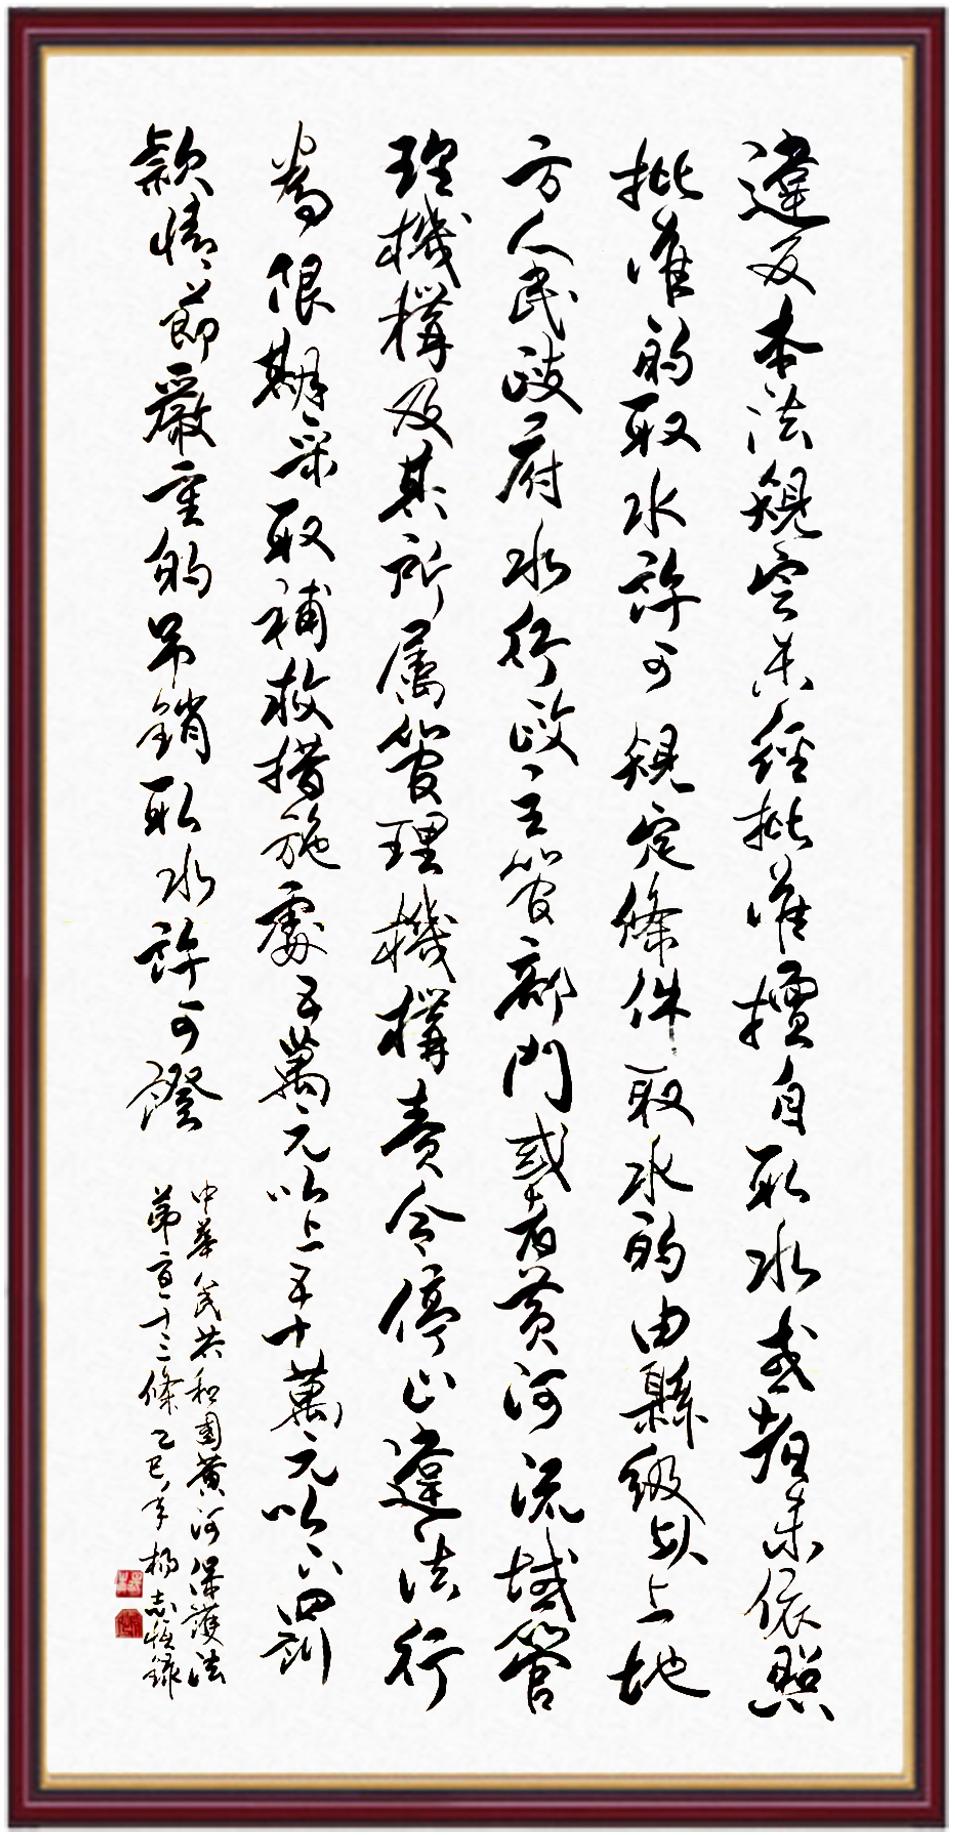 違反本法規定未經批准擅自取水或者未依照
批准的取水許可規定條件取水的由縣級以上地
方人民政府水行政主管部門或者黃河流域管
理機構及其所屬管理機構責令停止違法行
為限期采取補救措施處五萬元以上五十萬元以下罰
款情節嚴重的吊銷取水許可證
中華人民共和國黃河保護法
第一百一十二條乙巳年楊志錄